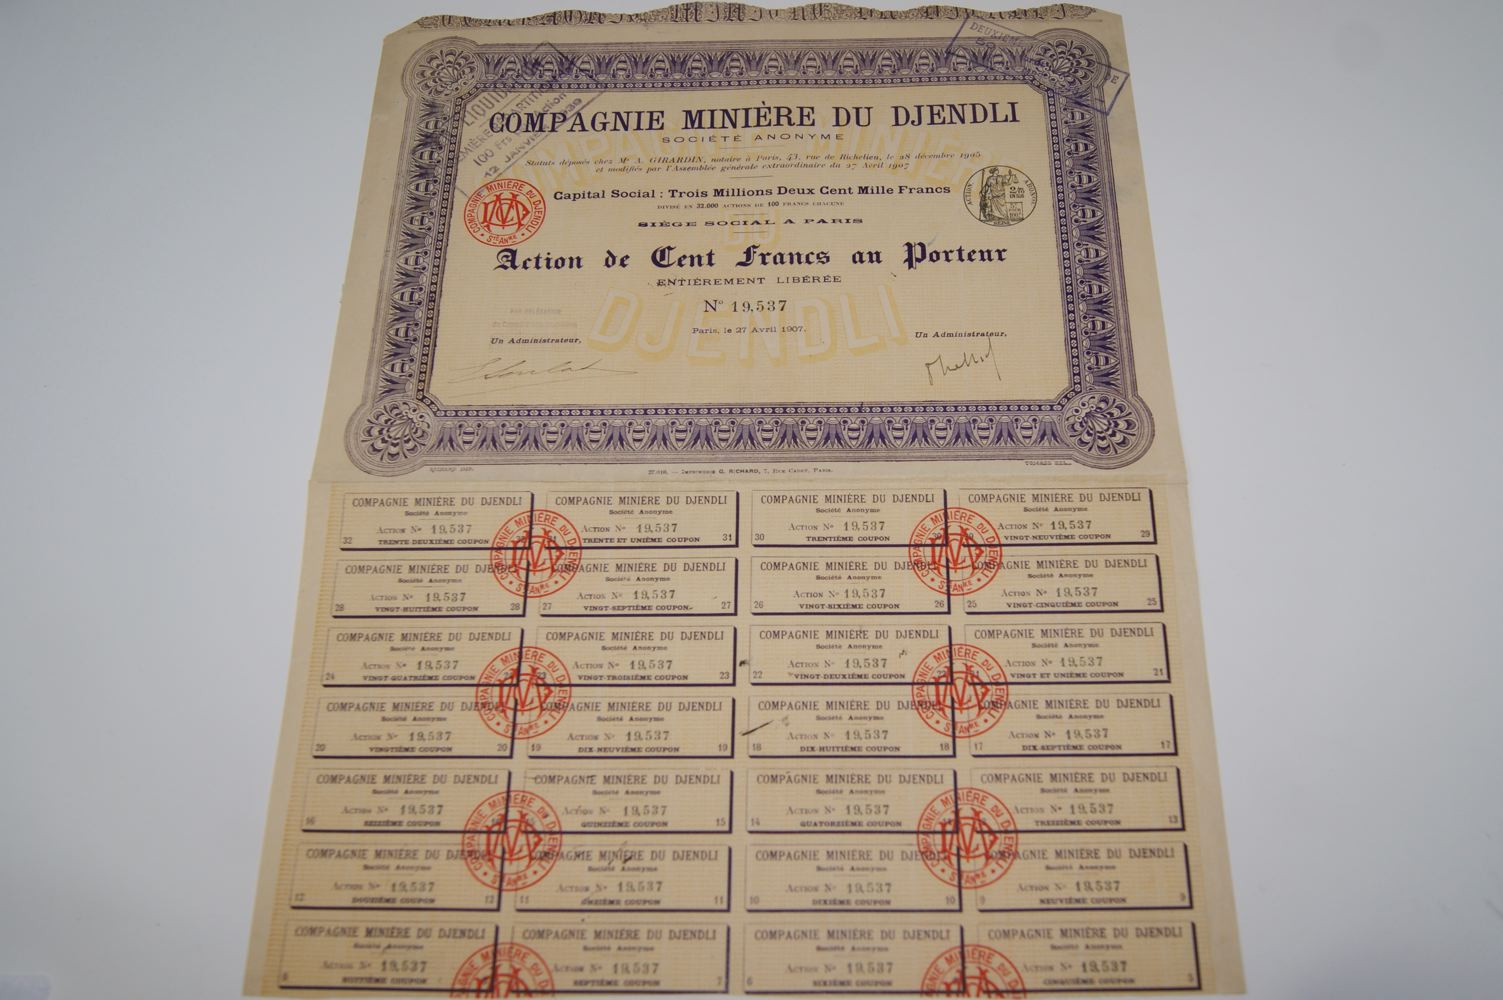 LIQUIDATION
100 Frs
12 JANVIER
COMPAGNIE MINIÈRE DU DJENDLI
SOCIÉTÉ ANONYME
Statuts déposés chez Me A. GIRARDIN, notaire à Paris, 43, rue de Richelieu, le 28 décembre 1905
et modifiés par l'Assemblée générale extraordinaire du 27 Avril 1907
Capital Social : Trois Millions Deux Cent Mille Francs
DIVISÉ EN 32.000 ACTIONS DE 100 FRANCS CHACUNE
SIÈGE SOCIAL A PARIS
COMPAGNIE MINIÈRE DU DJENDLI
Sté ANme
Action de Cent Francs au Porteur
ENTIÈREMENT LIBÉRÉE
No 19,537
Paris, le 27 Avril 1907.
Un Administrateur,
Un Administrateur,
DJENDLI
27.016. — Imprimerie G. RICHARD, 7, Rue Cadet, Paris.
COMPAGNIE MINIÈRE DU DJENDLI
Société Anonyme
Action No 19,537
32 TRENTE-DEUXIÈME COUPON
COMPAGNIE MINIÈRE DU DJENDLI
Société Anonyme
Action No 19,537
TRENTE ET UNIÈME COUPON 31
COMPAGNIE MINIÈRE DU DJENDLI
Société Anonyme
Action No 19,537
30 TRENTIÈME COUPON
COMPAGNIE MINIÈRE DU DJENDLI
Société Anonyme
Action No 19,537
VINGT-NEUVIÈME COUPON 29
COMPAGNIE MINIÈRE DU DJENDLI
Société Anonyme
Action No 19,537
28 VINGT-HUITIÈME COUPON 28
COMPAGNIE MINIÈRE DU DJENDLI
Société Anonyme
Action No 19,537
27 VINGT-SEPTIÈME COUPON 27
COMPAGNIE MINIÈRE DU DJENDLI
Société Anonyme
Action No 19,537
26 VINGT-SIXIÈME COUPON 26
COMPAGNIE MINIÈRE DU DJENDLI
Société Anonyme
Action No 19,537
25 VINGT-CINQUIÈME COUPON 25
COMPAGNIE MINIÈRE DU DJENDLI
Société Anonyme
Action No 19,537
24 VINGT-QUATRIÈME COUPON
COMPAGNIE MINIÈRE DU DJENDLI
Société Anonyme
Action No 19,537
23 VINGT-TROISIÈME COUPON 23
COMPAGNIE MINIÈRE DU DJENDLI
Société Anonyme
Action No 19,537
22 VINGT-DEUXIÈME COUPON
COMPAGNIE MINIÈRE DU DJENDLI
Société Anonyme
Action No 19,537
VINGT ET UNIÈME COUPON 21
COMPAGNIE MINIÈRE DU DJENDLI
Société Anonyme
Action No 19,537
20 VINGTIÈME COUPON 20
COMPAGNIE MINIÈRE DU DJENDLI
Société Anonyme
Action No 19,537
19 DIX-NEUVIÈME COUPON 19
COMPAGNIE MINIÈRE DU DJENDLI
Société Anonyme
Action No 19,537
18 DIX-HUITIÈME COUPON 18
COMPAGNIE MINIÈRE DU DJENDLI
Société Anonyme
Action No 19,537
17 DIX-SEPTIÈME COUPON 17
COMPAGNIE MINIÈRE DU DJENDLI
Société Anonyme
Action No 19,537
16 SEIZIÈME COUPON
COMPAGNIE MINIÈRE DU DJENDLI
Société Anonyme
Action No 19,537
QUINZIÈME COUPON 15
COMPAGNIE MINIÈRE DU DJENDLI
Société Anonyme
Action No 19,537
14 QUATORZIÈME COUPON
COMPAGNIE MINIÈRE DU DJENDLI
Société Anonyme
Action No 19,537
TREIZIÈME COUPON 13
COMPAGNIE MINIÈRE DU DJENDLI
Société Anonyme
Action No 19,537
12 DOUZIÈME COUPON 12
COMPAGNIE MINIÈRE DU DJENDLI
Société Anonyme
Action No 19,537
11 ONZIÈME COUPON 11
COMPAGNIE MINIÈRE DU DJENDLI
Société Anonyme
Action No 19,537
10 DIXIÈME COUPON 10
COMPAGNIE MINIÈRE DU DJENDLI
Société Anonyme
Action No 19,537
9 NEUVIÈME COUPON 9
COMPAGNIE MINIÈRE DU DJENDLI
Société Anonyme
Action No 19,537
8 HUITIÈME COUPON
COMPAGNIE MINIÈRE DU DJENDLI
Société Anonyme
Action No 19,537
SEPTIÈME COUPON 7
COMPAGNIE MINIÈRE DU DJENDLI
Société Anonyme
Action No 19,537
6 SIXIÈME COUPON
COMPAGNIE MINIÈRE DU DJENDLI
Société Anonyme
Action No 19,537
CINQUIÈME COUPON 5